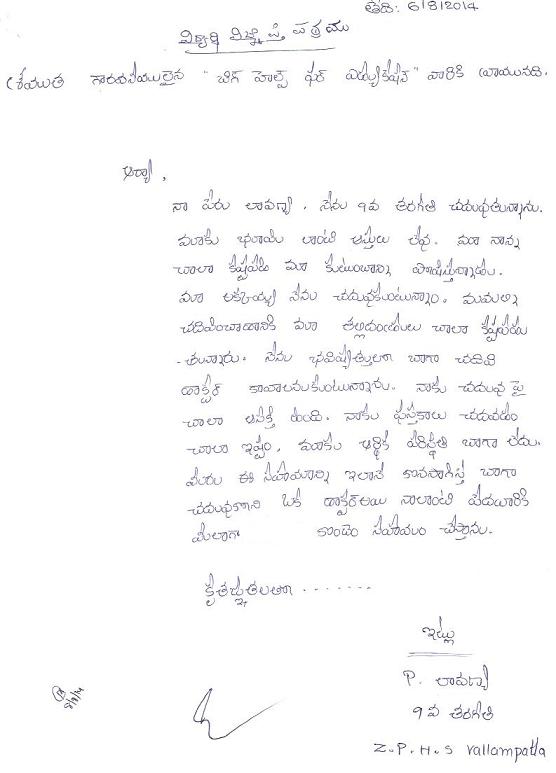 తేది: 6/8/2014
విద్యార్థి విజ్ఞప్తి పత్రము
శ్రీయుత గౌరవనీయులైన "బిగ్ హెల్ప్ ఫర్ ఎడ్యుకేషన్" వారికి వ్రాయునది.
ఆర్యా,
నా పేరు లావణ్య. నేను 9వ తరగతి చదువుతున్నాను.
మాకు భూమి లాంటి ఆస్తులు లేవు. మా నాన్న
చాలా కష్టపడి మా కుటుంబాన్ని పోషిస్తున్నాడు.
మా అక్కయ్య నేను చదువుకుంటున్నాం. మమల్ని
చదివించడానికి మా తల్లిదండ్రులు చాలా కష్టపడు
-తున్నారు. నేను భవిష్యత్తులో బాగా చదివి
డాక్టర్ కావాలనుకుంటున్నాను. నాకు చదువు పై
చాలా ఆసక్తి ఉంది. నాకు పుస్తకాలు చదువడం
చాలా ఇష్టం. మాకు ఆర్థిక పరిస్థితి బాగా లేదు.
మీరు ఈ సహాయాన్ని ఇలానే కొనసాగిస్తే బాగా
చదువుకొని ఒక డాక్టర్ అయి నాలాంటి పేదవారికి
మీలాగా కొండెం సహాయం చేస్తాను.
కృతజ్ఞతలతో .......
ఇట్లు
P. లావణ్య
9 వ తరగతి
Z.P.H.S Vallampatla